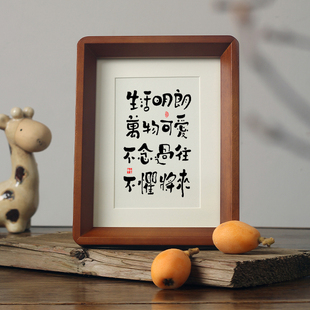 生活明朗
萬物可愛
不念過往
不懼將來